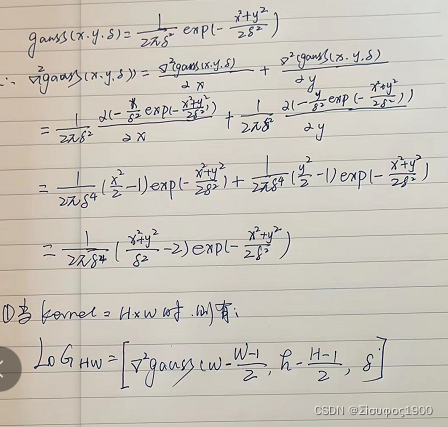 gauss(x.y.δ) = 1/2πδ² exp(- x²+y²/2δ²)
∴ ∇²gauss(x,y,δ)) = ∇²(gauss(x,y,δ)/∂x + ∇²(gauss(x,y,δ)/∂y
= 1/2πδ² ∂(-x/δ² exp(- x²+y²/2δ²)/∂x + 1/2πδ² ∂(-y/δ² exp(- x²+y²/2δ²))/∂y
= 1/2πδ⁴ (x²/2 -1) exp(- x²+y²/2δ²) + 1/2πδ⁴ (y²/2 -1) exp(- x²+y²/2δ²)
= 1/2πδ⁴ (x²+y²/δ² -2) exp(- x²+y²/2δ²)
①当 kernel = H×W 时, 则有:
LoG HW = [∇²gauss(w- W-1/2, h- H-1/2, δ]
CSDN @Σίσυφος1900